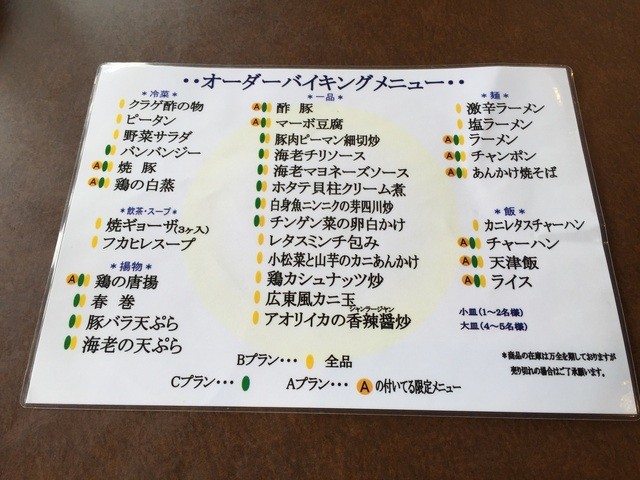 ・・オーダーバイキングメニュー・・
＊冷菜＊
クラゲ酢の物
ピータン
野菜サラダ
バンバンジー
A 焼 豚
A 鶏の白蒸
＊飲茶・スープ＊
焼ギョーザ(3ヶ入)
フカヒレスープ
＊揚物＊
A 鶏の唐揚
春 巻
豚バラ天ぷら
海老の天ぷら
＊一品＊
A 酢 豚
A マーボ豆腐
豚肉ピーマン細切炒
海老チリソース
海老マヨネーズソース
ホタテ貝柱クリーム煮
白身魚ニンニクの芽四川炒
チンゲン菜の卵白かけ
レタスミンチ包み
小松菜と山芋のカニあんかけ
鶏カシュナッツ炒
広東風カニ玉
ジャンラージャン
アオリイカの香辣醤炒
＊麺＊
激辛ラーメン
塩ラーメン
A ラーメン
A チャンポン
A あんかけ焼そば
＊飯＊
カニレタスチャーハン
A チャーハン
A 天津飯
A ライス
小皿(1〜2名様)
大皿(4〜5名様)
Bプラン・・・ 全品
Cプラン・・・ Aプラン・・・ A の付いてる限定メニュー
＊商品の在庫は万全を期しておりますが
売り切れの場合はご了承願います。